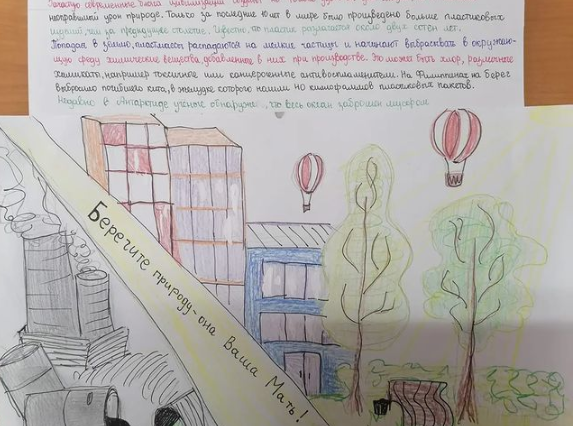 Зачастую современные блага цивилизации
непоправимый урон природе. Только за последние 10 лет в мире было произведено больше пластиковых
чем за предыдущее столетие. Известно, что пластик разлагается около двух сотен лет.
Попадая в землю, пластмассы распадаются на мелкие частицы и начинают выбрасывать в окружаю-
щую среду химические вещества, добавленные в них при производстве. Это может быть хлор, различные
химикаты, например токсичные или канцерогенные антивоспламенители. На Филиппинах на берег
выбросило погибшего кита, в желудке которого нашли 40 килограммов пластиковых пакетов.
Недавно в Антарктиде учёные обнаружи что весь океан заброшен мусором.
Берегите природу-она Ваша Мать!